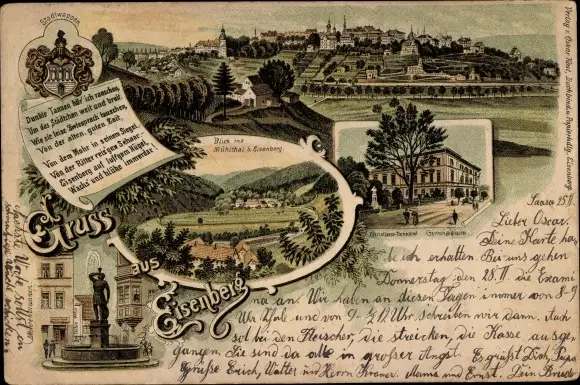 Stadtwappen.
Dunkle Tannen hör' ich rauschen,
Um das Städtchen weit und breit
Wie sie leise Zwiesprach tauschen
Von der alten, guten Zeit,
Von dem Mohr in seinem Siegel,
Von der Ritter reis'gen Schaar,
Eisenberg auf luft'gem Hügel,
Wachs' und blühe immerdar!
Blick ins
Mühlthal b. Eisenberg.
Christians-Denkmal Gymnasium
Gruss
aus
Eisenberg
Verlag v. Oskar Buchbind. u. Papierhdlg. Eisenberg.
15./II.
Lieber Oscar.
Deine Karte ha-
be ich erhalten. Bei uns gehen
Donnerstag, den 28. II die Exami
na an. Wir haben an diesen Tagen immer von 8-9
und von 9-½12 Uhr Schreiben wir dann.
bei den Fleischer, die streicken, die Kasse ausge
gangen. Sie sind da alle in großer Angst. Es grüßt Dich,
Grüße Erich, Walter und Herrn Mama und Ernst. Dein Bruder